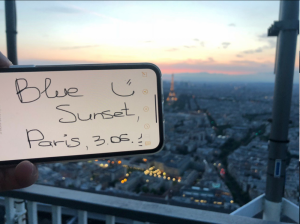 Blue ツ
Sunset,
Paris, 3 06.!